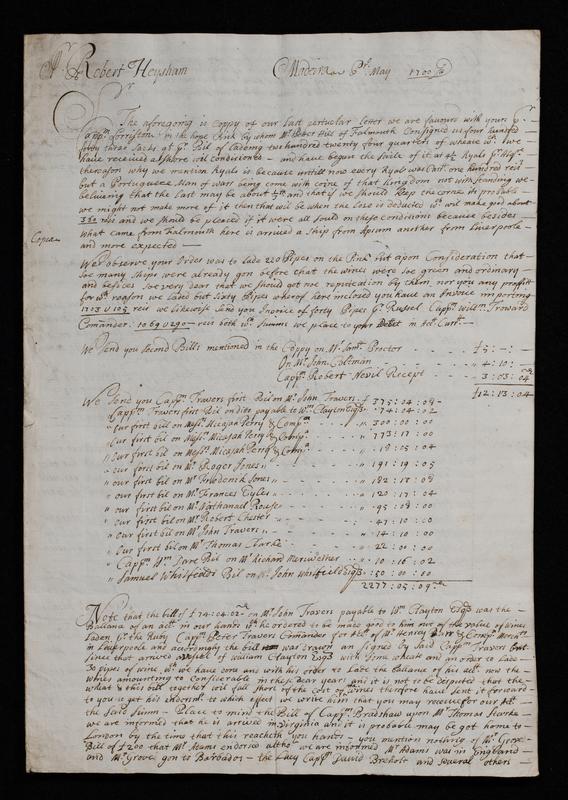 Mr Robert Heysham Madeira 6 May 1700
Sr
The aforegoing is Coppy of our last perticular letter we are favours with yours
Capt Corriston in the hope Pink by whom Mr Peter Hill of Falmouth Consigned us four hundred
fifty three sacks qt Gr Bill of Lading two hundred twenty four quarters of wheate wch we
have received ashore well conditioned and have begun the saile of it at 4½ Ryals
thereason why we mention Ryals is because untill now every Ryal was Curtt one hundred reis
but a Portuguese Man of war being come with coine of that Kingdom not withstanding we
beleiving that the last may be about and that if we should keep the corne its probable
we might not make more of it then that will be when the Loss is deducted wch will make good about
360 reis and we should be pleased if it were all sould on these conditions because besides
what came from Falmouth here is arrived a ship from Apsum another from Liverpoole
and more expected
Copia
Wee observe your Order was to lade 220 Pipes on the Pink but upon Consideration that
soe many Ships were already gon before that the wines were soe green and ordinary
and besides soe very dear that we should get noe reputation by them, nor you any proffitt
for wch reason we laded but sixty Pipes whereof here inclosed you have an Invoice importing
1703 U 105 reis we likewise send you Invoice of forty Pipes Gr Russel Capptn Willm Troward
Comander 1069 U 290 reis both wch summs we place to your Debet in Acct Curtt
We send you second Bills mentioned in the Coppy on Mr Saml Proctor £5 : - : -
On Mr John Coleman 4 : 10 : -
Capptn Robert Nevil Receipt 3 : 03 : 04
£12 : 13 : 04
We send you Capptn Travers first Bill on Mr John Travers £375 : 04 : 08
Capptn Travers first Bill on ditto payable to Wm Clayton Esqr 74 : 04 : 02
our first bill on Messrs Micajah Perry & Compa 300 : 00 : 00
our first bill on Messrs Micajah Perry & Compa 773 : 17 : 00
our first bill on Messrs Micajah Perry & Compa 18 : 05 : 04
our first bill on Mr Roger Jones 191 : 19 : 05
our first bil on Mr Frederick Jones 182 : 17 : 08
our first bil on Mr Frances Eyles 120 : 17 : 04
our first bil on Mr Nathanael Rouse 95 : 08 : 00
our first bil on Mr Robert Chester 47 : 10 : 0
our first bil on Mr John Travers 14 : 10 : 00
Our first bil on Mr Thomas Clarke 22 : 00 : 00
Capptn Wm Dare Bil on Mr Richard Meriwether 10 : 16 : 02
Samuel Whitfeilds Bil on Mr John Whitfeild Esqr 50 : 00 : 00
2277 : 05 : 09
Note that the bill of £74 : 04 : 02 on Mr John Travers payable to Wm Clayton Esqr was the
Ballana of an acct in our hands wch he ordered to be made good to him out of the value of wines
Laden pr the Ruby Capptn Peter Travers Comander for Acct of Mr Henry & Compa Merchts
in Liverpoole and accordingly the bill was drawn an signed by Said Capptn Travers but
since that arrived a vessel of William Clayton Esqrs with some wheat and an order to Lade
pipes of wine wch we have don ans with his order to Lade the Ballance of his acct now the
wines amounting to Considerable in these dear years and it is not to be disputed that the
wheat & this bill together will fall short of the Cost of wines therefore have sent it forward
to you to get his endorsmt to which effect we write him that you may receive for our Acct
the said summ Place to mind the Bill of Capptn Bradshaw upon Mr Thomas Starke
we are informed that he is arrived in Virginia and it is probable may be got home to
London by the time that this reacheth you hands you mention nothing of Mr Groves
Bill of £200 that Mr Adams endorsed altho we are informed Mr Adams was in England
and Mr Grove gon to Barbados the Lucy Capptn David Breholt and several others